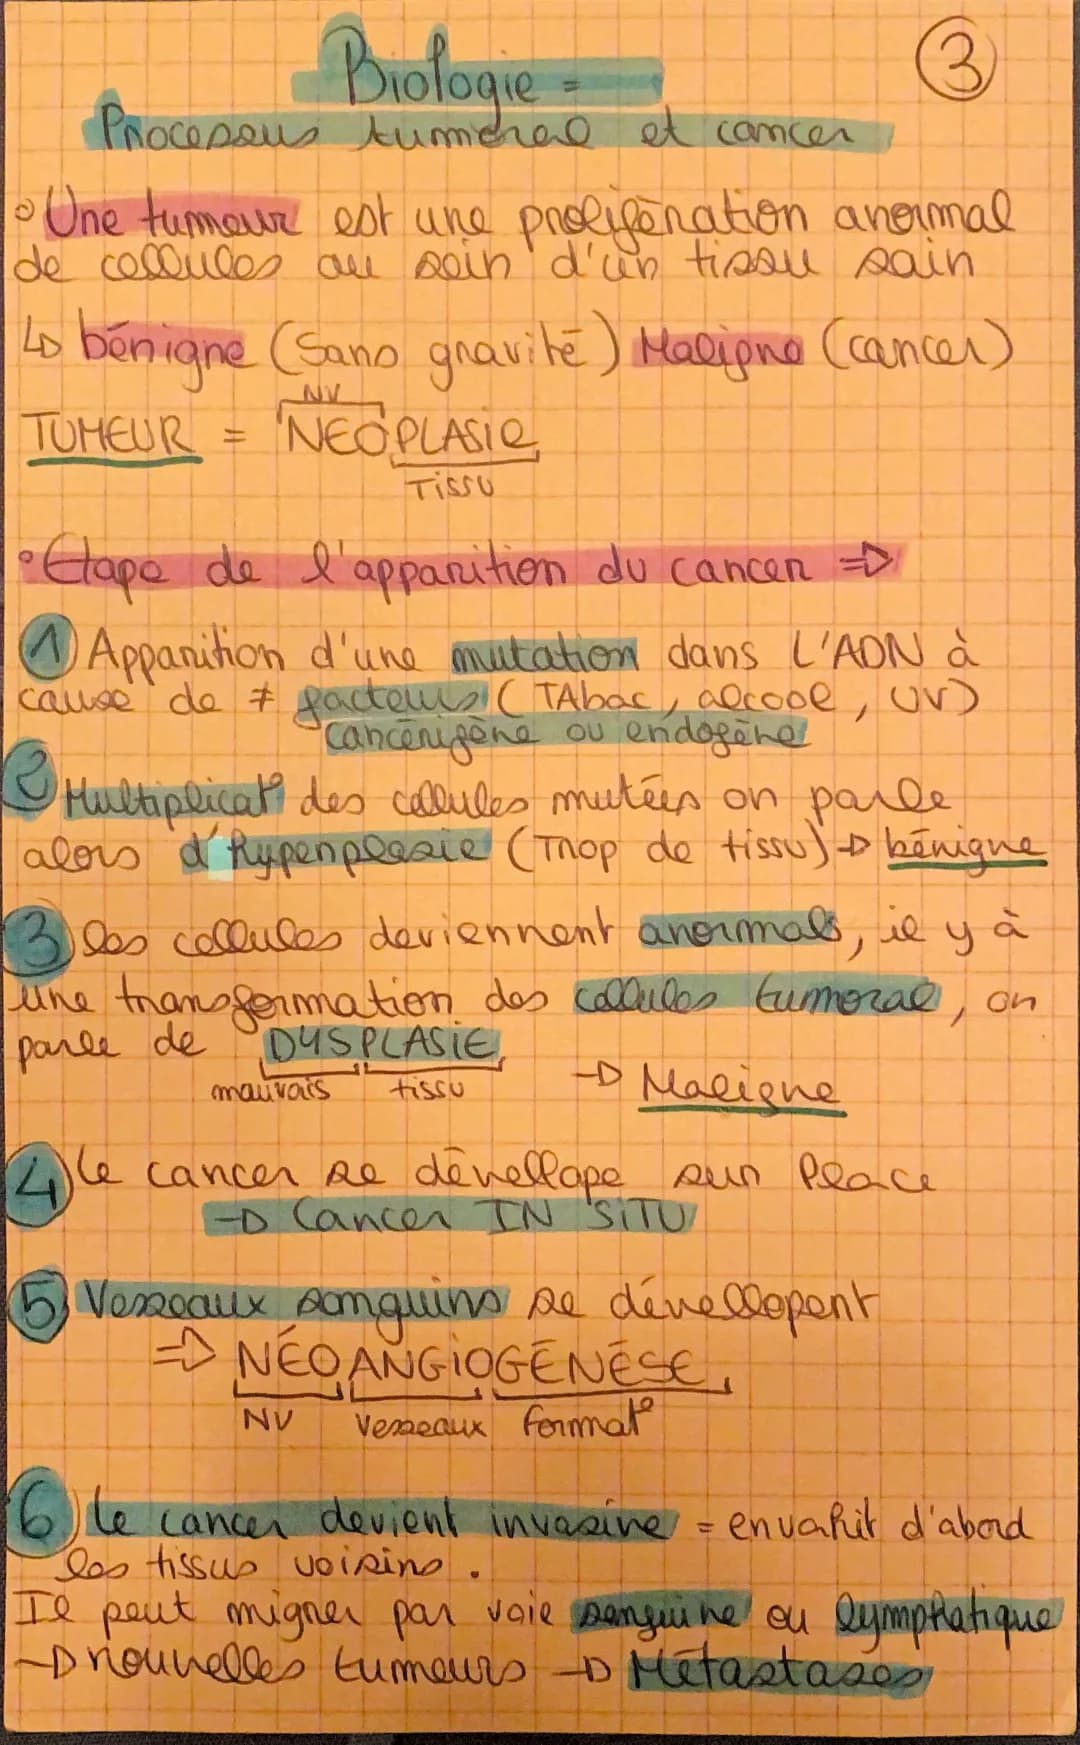 3
Biologie =
Processus tumoral et cancer
Une tumeur est une prolifération anormal
de cellules au sein d'un tissu sain
↳ bénigne (Sans gravité) Maligne (cancer)
NV
TUMEUR = NEOPLASIE
TISSU
Etape de l'apparition du cancer =>
1 Apparition d'une mutation dans L'ADN à
cause de ≠ facteurs (TAbac, alcool, UV)
cancérigène ou endogène
2 Multiplicat° des cellules mutées on parle
alors d'hyperplasie (Trop de tissu) → bénigne
3 les cellules deviennent anormals, il y à
une transformation des cellules tumoral, on
parle de DYSPLASIE
mauvais tissu → Maligne
4 le cancer se dévellope sur place
→ Cancer IN SITU
5 Vesseaux sanguins se dévellopent
=> NÉOANGIOGÉNÉSE
NV Vesseaux format°
6 le cancer devient invasive = envahit d'abord
les tissus voisins.
Il peut migrer par voie sanguine ou lymphatique
→ nouvelles tumeurs → Métastases